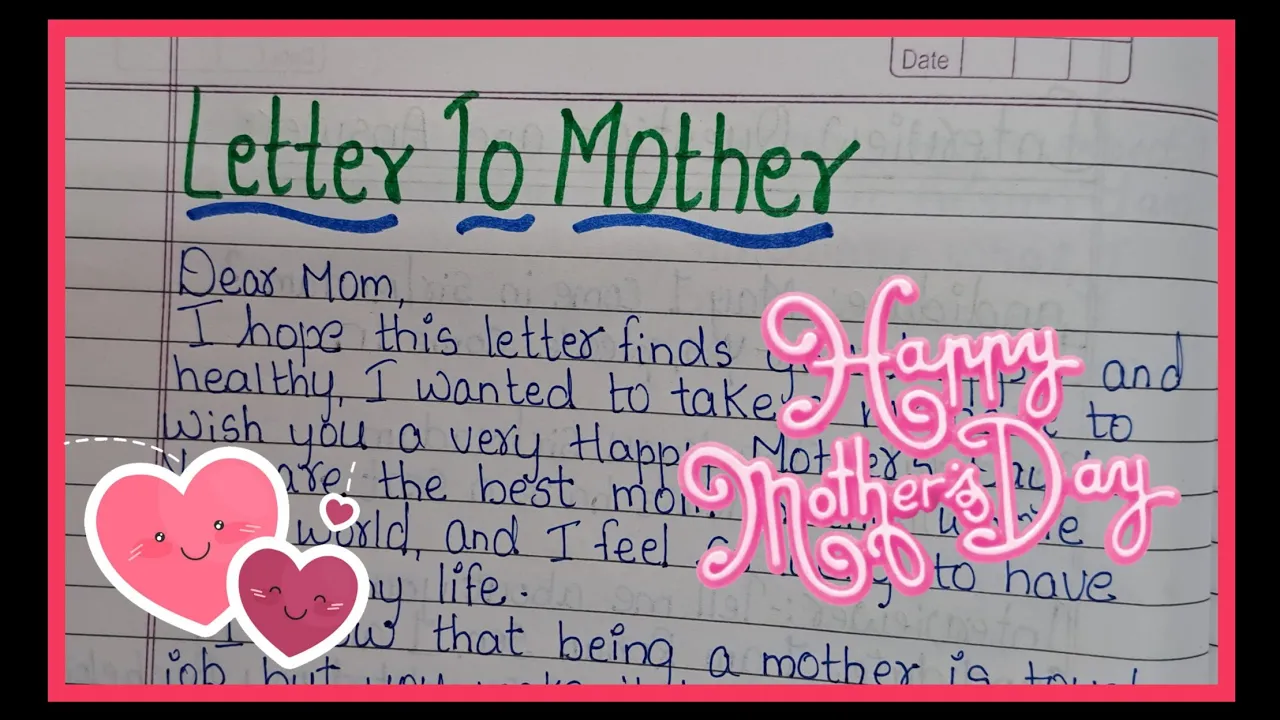 Date
Letter To Mother
Dear Mom,
I hope this letter finds and
healthy, I wanted to take to
wish you a very Happy Mother's
are the best mom
world, and I feel to have
my life.
I know that being a mother is
job but you
Happy
Mother's Day